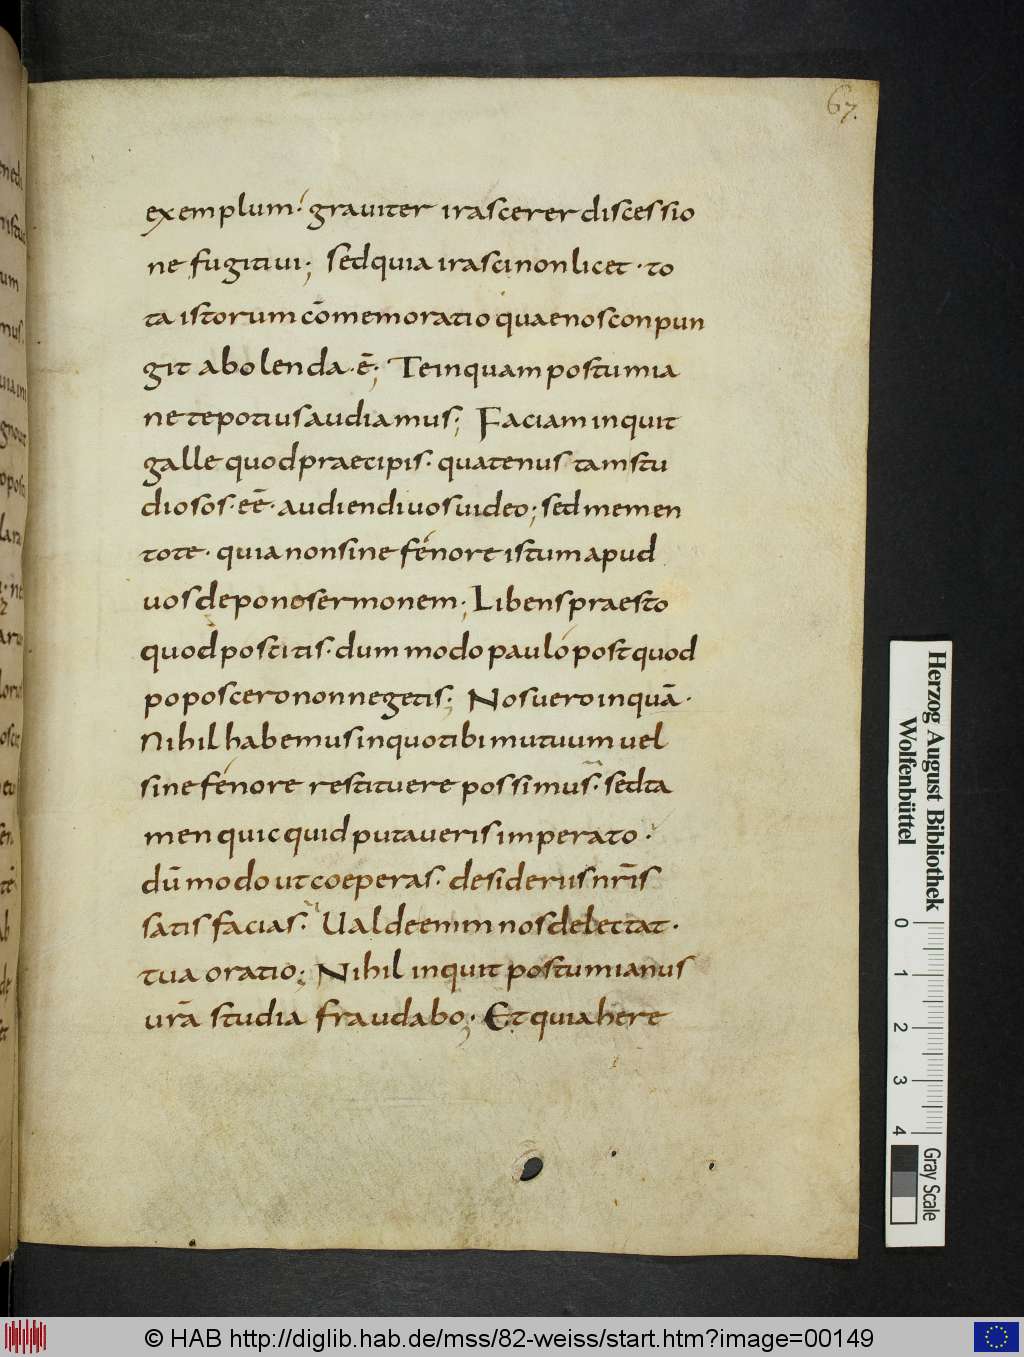 67.
exemplum· graviter irascerer discessio
ne fugitivi; sed quia irasci non licet· to
ta istorum cōmemoratio quae nos conpun
git abolenda·ē; Te inquam postumia
ne te potius audiamus; Faciam inquit
galle quod praecipis· quatenus tam stu
diosos·eē· audiendi vos video; sed memen
tote· quia non sine fénore istum apud
vos depono sermonem; Libens praesto
quod poscitis· dum modo pauló post quod
poposcero non negetis; Nos vero inquā·
Nihil habemus in quo tibi mutuum vel
sine fénore restituere possimus· sed ta
men quicquid putaveris imperato·
dū modo ut coeperas· desideriis nr̄is
satis facias· Valde enim nos delectat·
tua oratio; Nihil inquit postumianus
ur̄a studia fraudabo;· Et quia here
Herzog August Bibliothek
Wolfenbüttel
0 1 2 3 4
Gray Scale
© HAB http://diglib.hab.de/mss/82-weiss/start.htm?image=00149